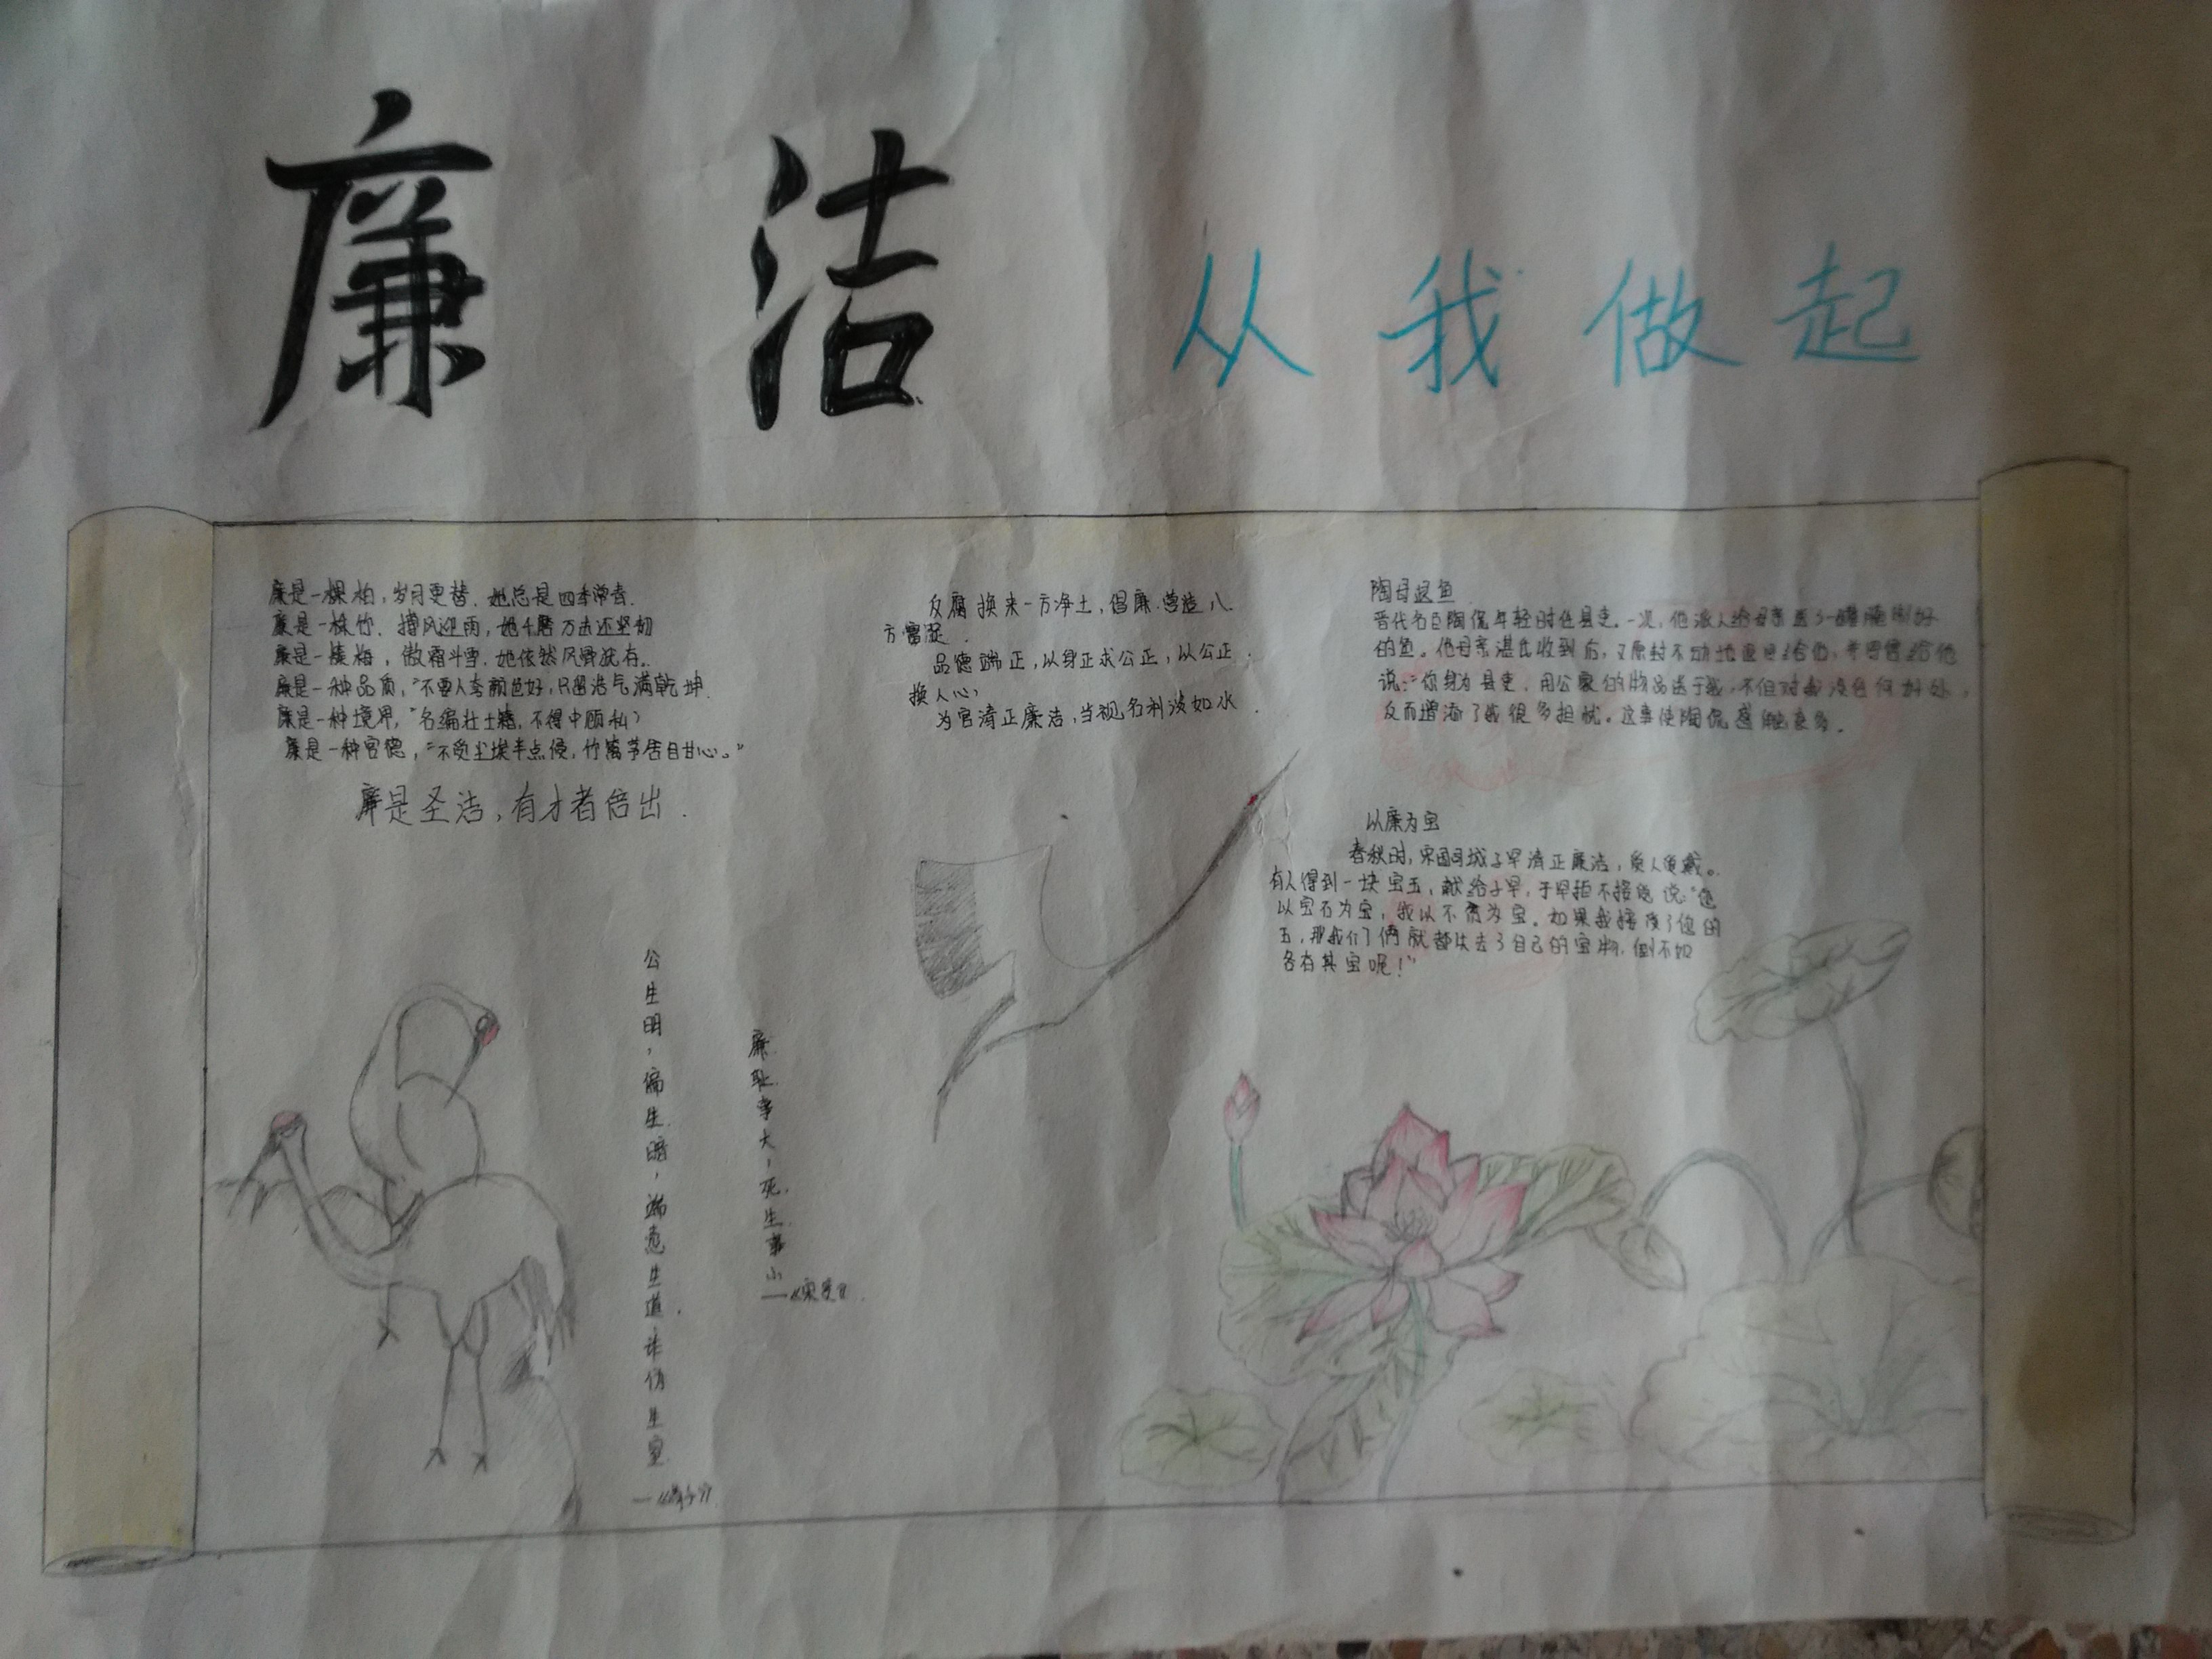 廉 洁 从 我 做 起
廉是一棵柏，岁月更替，她总是四季常青.
廉是一株竹，搏风迎雨，她千磨万击还坚韧
廉是一棵梅，傲霜斗雪，她依然风骨犹存.
廉是一种品质，“不要人夸颜色好，只留浩气满乾坤.
廉是一种境界，“名编壮士籍，不得中顾私”
廉是一种官德，“不受尘埃半点侵，竹篱茅舍自甘心。”
廉是圣洁，有才者倍出.
公生明，偏生暗，端悫生道，诈伪生塞
—《荀子》
廉耻事大，死生事小
反腐换来一方净土，倡廉营造八
方富涩.
品德端正，以身正求公正，以公正
换人心；
为官清正廉洁，当视名利淡如水.
陶母退鱼
晋代名臣陶侃年轻时任县吏.一次，他派人给母亲送了一罐腌制好
的鱼。他母亲湛氏收到后，又原封不动地退回给他，并写信给他
说：“你身为县吏，用公家的物品送于我，不但对我没任何好处，
反而增添了我很多担忧。这事使陶侃感触良多.
以廉为宝
春秋时，宋国司城子罕清正廉洁，受人爱戴。
有人得到一块宝玉，献给子罕，子罕拒不接受说：“您
以宝石为宝，我以不贪为宝。如果我接受了您的
玉，那我们俩就都失去了自己的宝物.倒不如
各有其宝呢！”